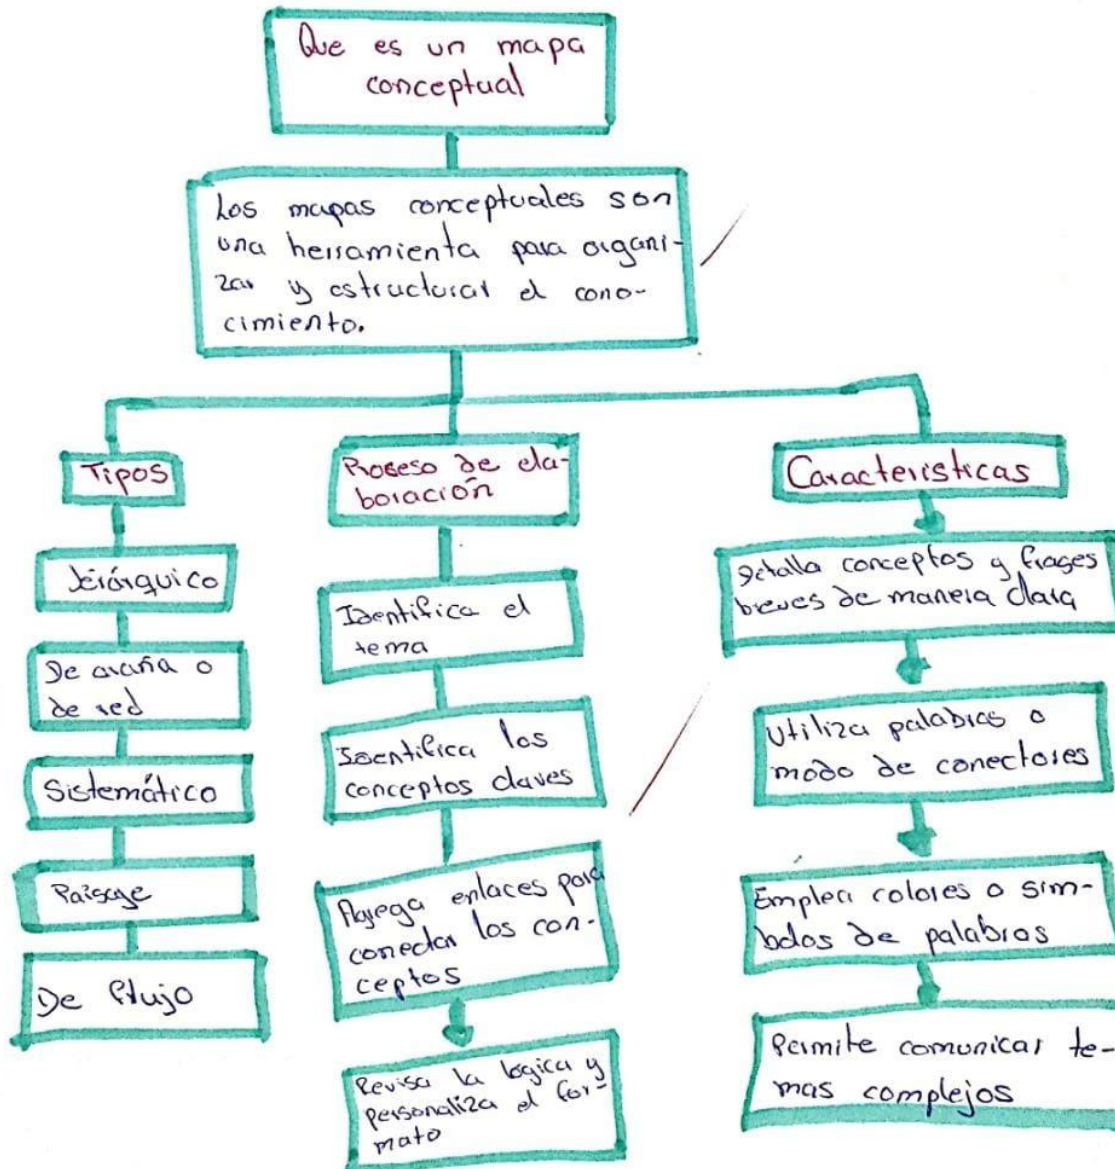 Que es un mapa
conceptual
Los mapas conceptuales son
una herramienta para organi-
zar y estructurar el cono-
cimiento.
Tipos
Jerárquico
De araña o
de red
Sistemático
Paisaje
De flujo
Proceso de ela-
boración
Identifica el
tema
Identifica los
conceptos claves
Agrega enlaces para
conectar los con-
ceptos
Revisa la lógica y
personaliza el for-
mato
Características
Detalla conceptos y frages
breves de manera clara
Utiliza palabras o
modo de conectores
Emplea colores o sim-
bolos de palabras
Permite comunicar te-
mas complejos